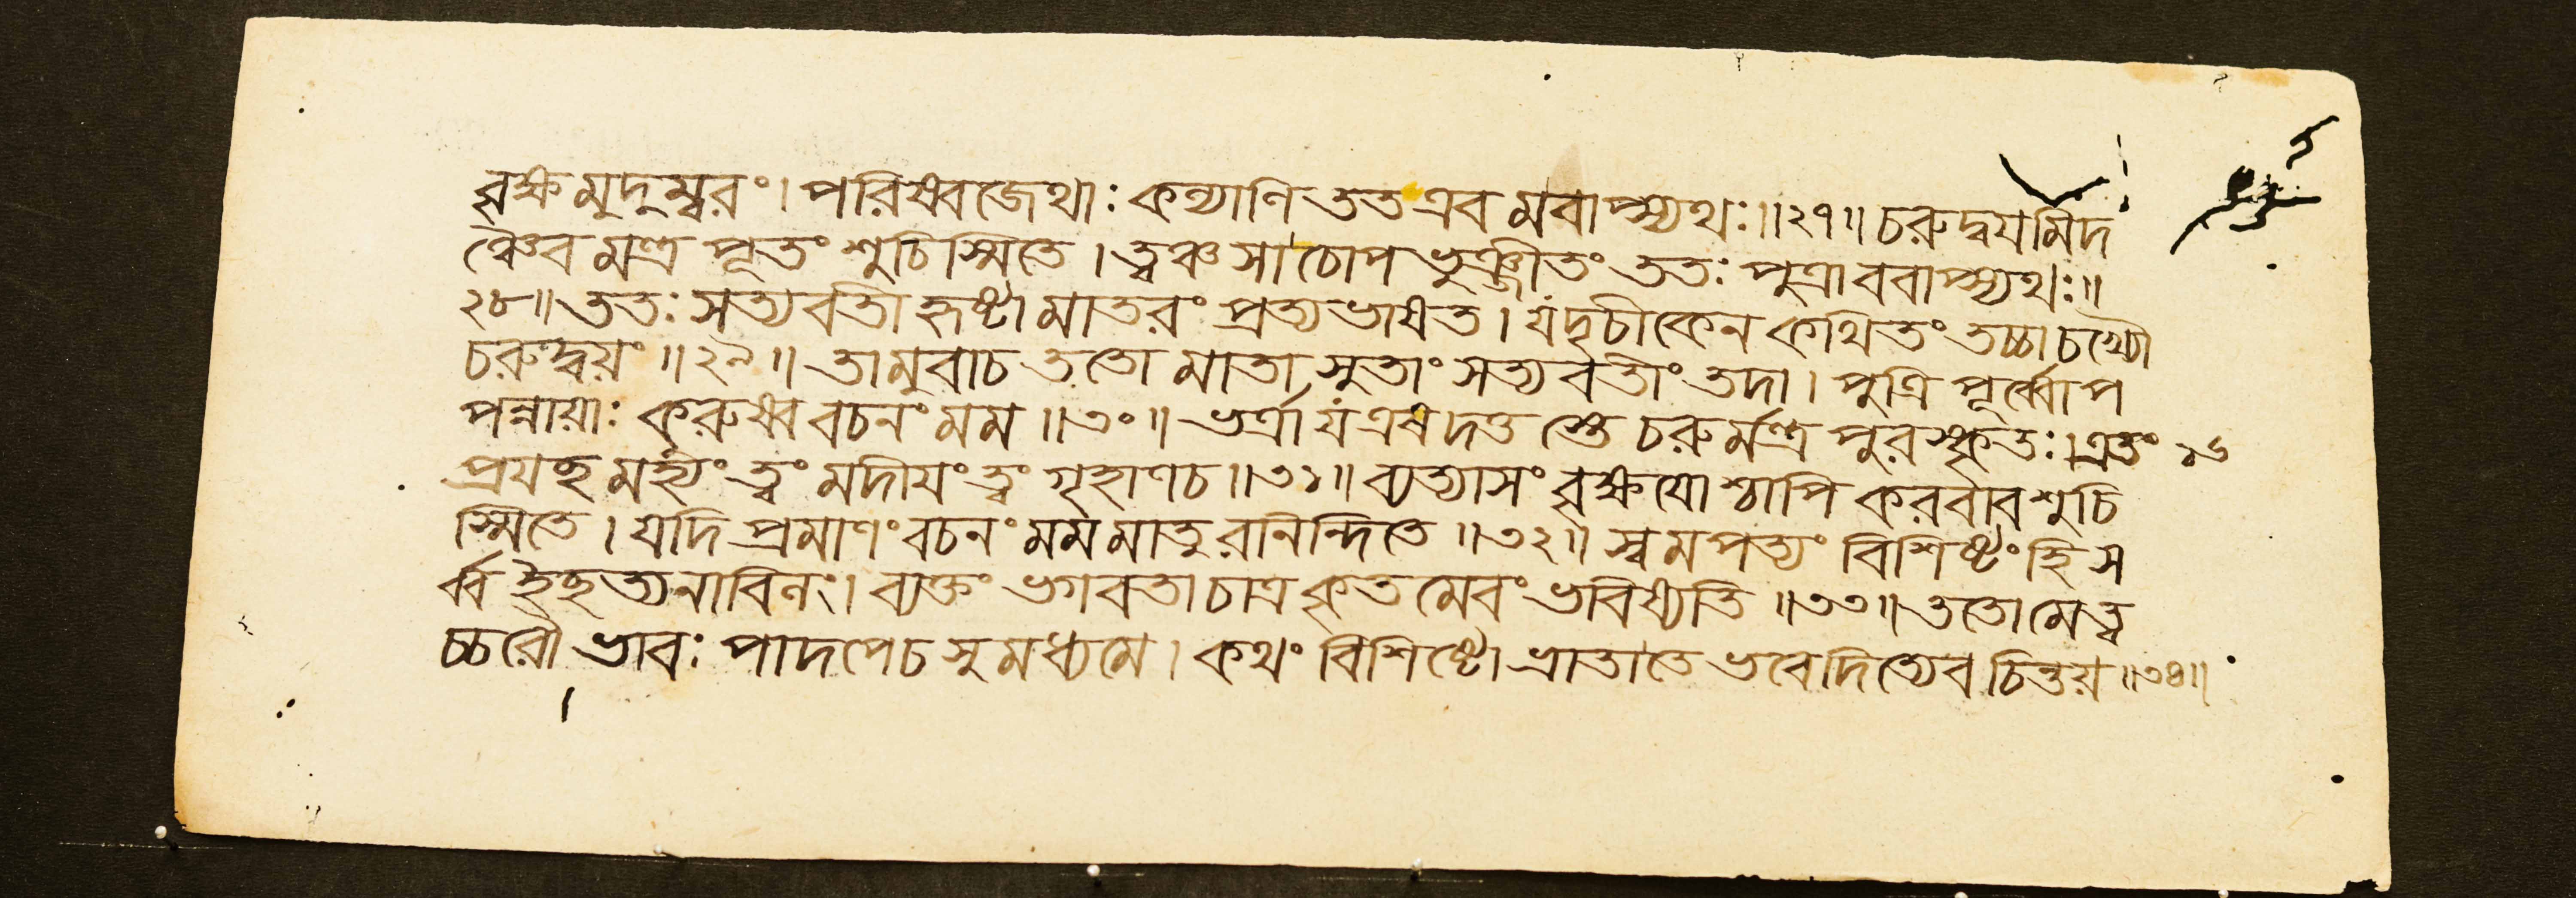 বৃক্ষমুদুম্বরং। পরিষ্বজেথাঃ কল্যাণি তত এব মবাপ্স্যথঃ॥২৭॥ চরুদ্বযমিদ
ঞ্চৈব মন্ত্র পূতং শুচিস্মিতে। ত্বঞ্চ সা চোপ ভুঞ্জীতং ততঃ পুত্রা ববাপ্স্যথঃ॥
২৮॥ ততঃ সত্যবতী হৃষ্টা মাতরং প্রত্যভাষত। যদৃচীকেন কথিতং তচ্চাচখ্যৌ
চরুদ্বয়ং॥২৯॥ তামুবাচ ততো মাতা সুতাং সত্যবতীং তদা। পুত্রি পূর্ব্বোপ
পন্নায়াঃ করুষ্ব বচনং মম॥৩০॥ ভর্ত্রা য এষ দত্ত স্তে চরুর্মন্ত্র পুরস্কৃতঃ। এতং ১৬
প্রযচ্ছ মহ্যং ত্বং মদীযং ত্বং গৃহাণ চ॥৩১॥ ব্যত্যাসং বৃক্ষযো শ্চাপি করবাব শুচি
স্মিতে। যদি প্রমাণং বচনং মম মাতু রনিন্দিতে॥৩২॥ স্বমপত্যং বিশিষ্টং হি স
র্ব্ব ইচ্ছত্যনাবিলং। ব্যক্তং ভগবতা চাত্র কৃত মেবং ভবিষ্যতি॥৩৩॥ ততো মে ত্ব
চ্চরৌ ভাবঃ পাদপে চ সুমধ্যমে। কথং বিশিষ্টো ভ্রাতা তে ভবেদিত্যেব চিন্তয়॥৩৪॥